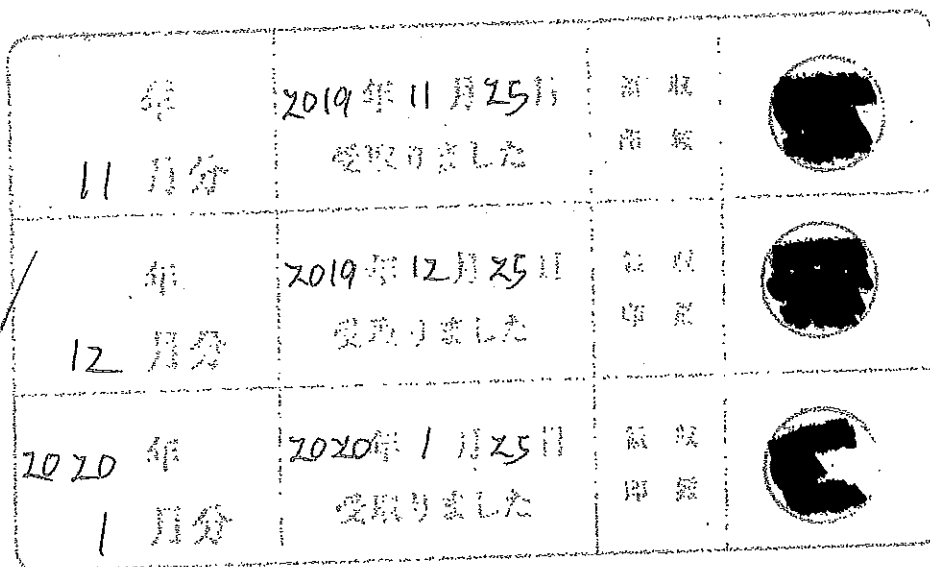 年
11 月分
2019年11月25日
受取りました
領収
印紙
年
12 月分
2019年12月25日
受取りました
領収
印紙
2020 年
1 月分
2020年1月25日
受取りました
領収
印紙